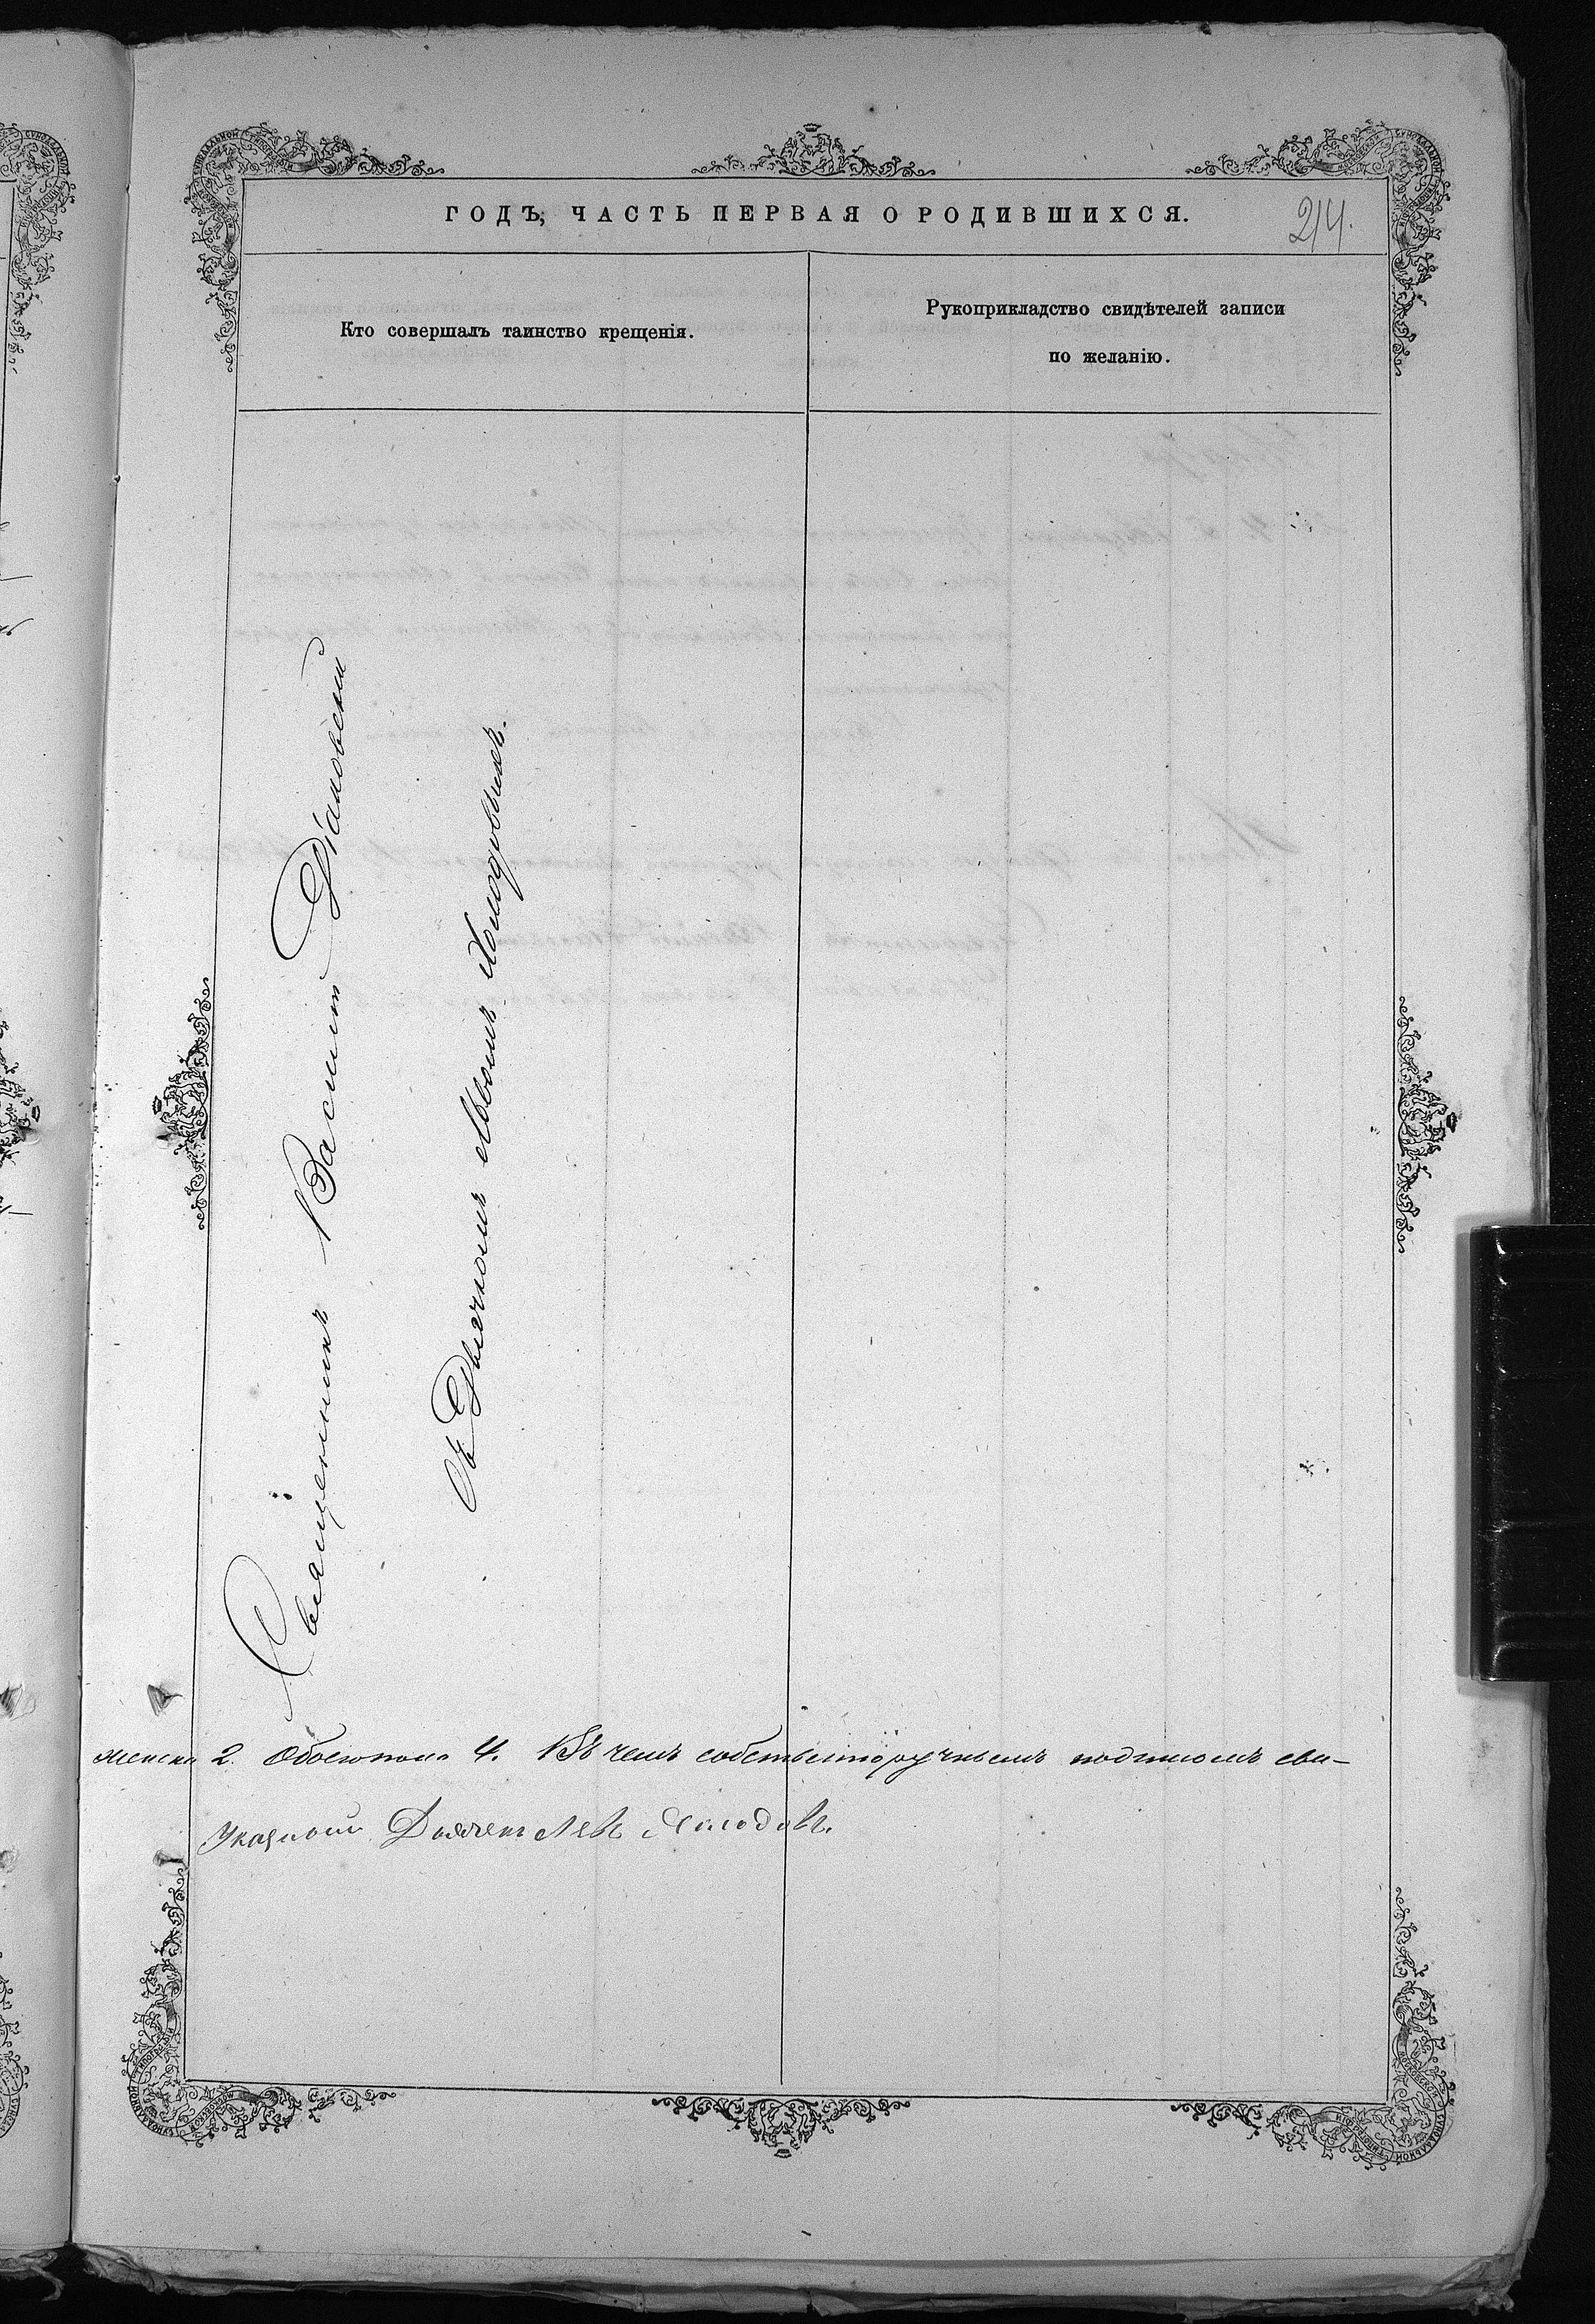 ГОДЪ, ЧАСТЬ ПЕРВАЯ О РОДИВШИХСЯ.
214.
Кто совершалъ таинство крещенія.
Рукоприкладство свидѣтелей записи
по желанію.
Священникъ Василій Діаковскій
съ Дьячкомъ Львомъ Холодовымъ.
женска 2. Обоего пола 4. Въ чемъ собственноручнымъ подписомъ сви-
Указной Дьячекъ Левъ Холодовъ.